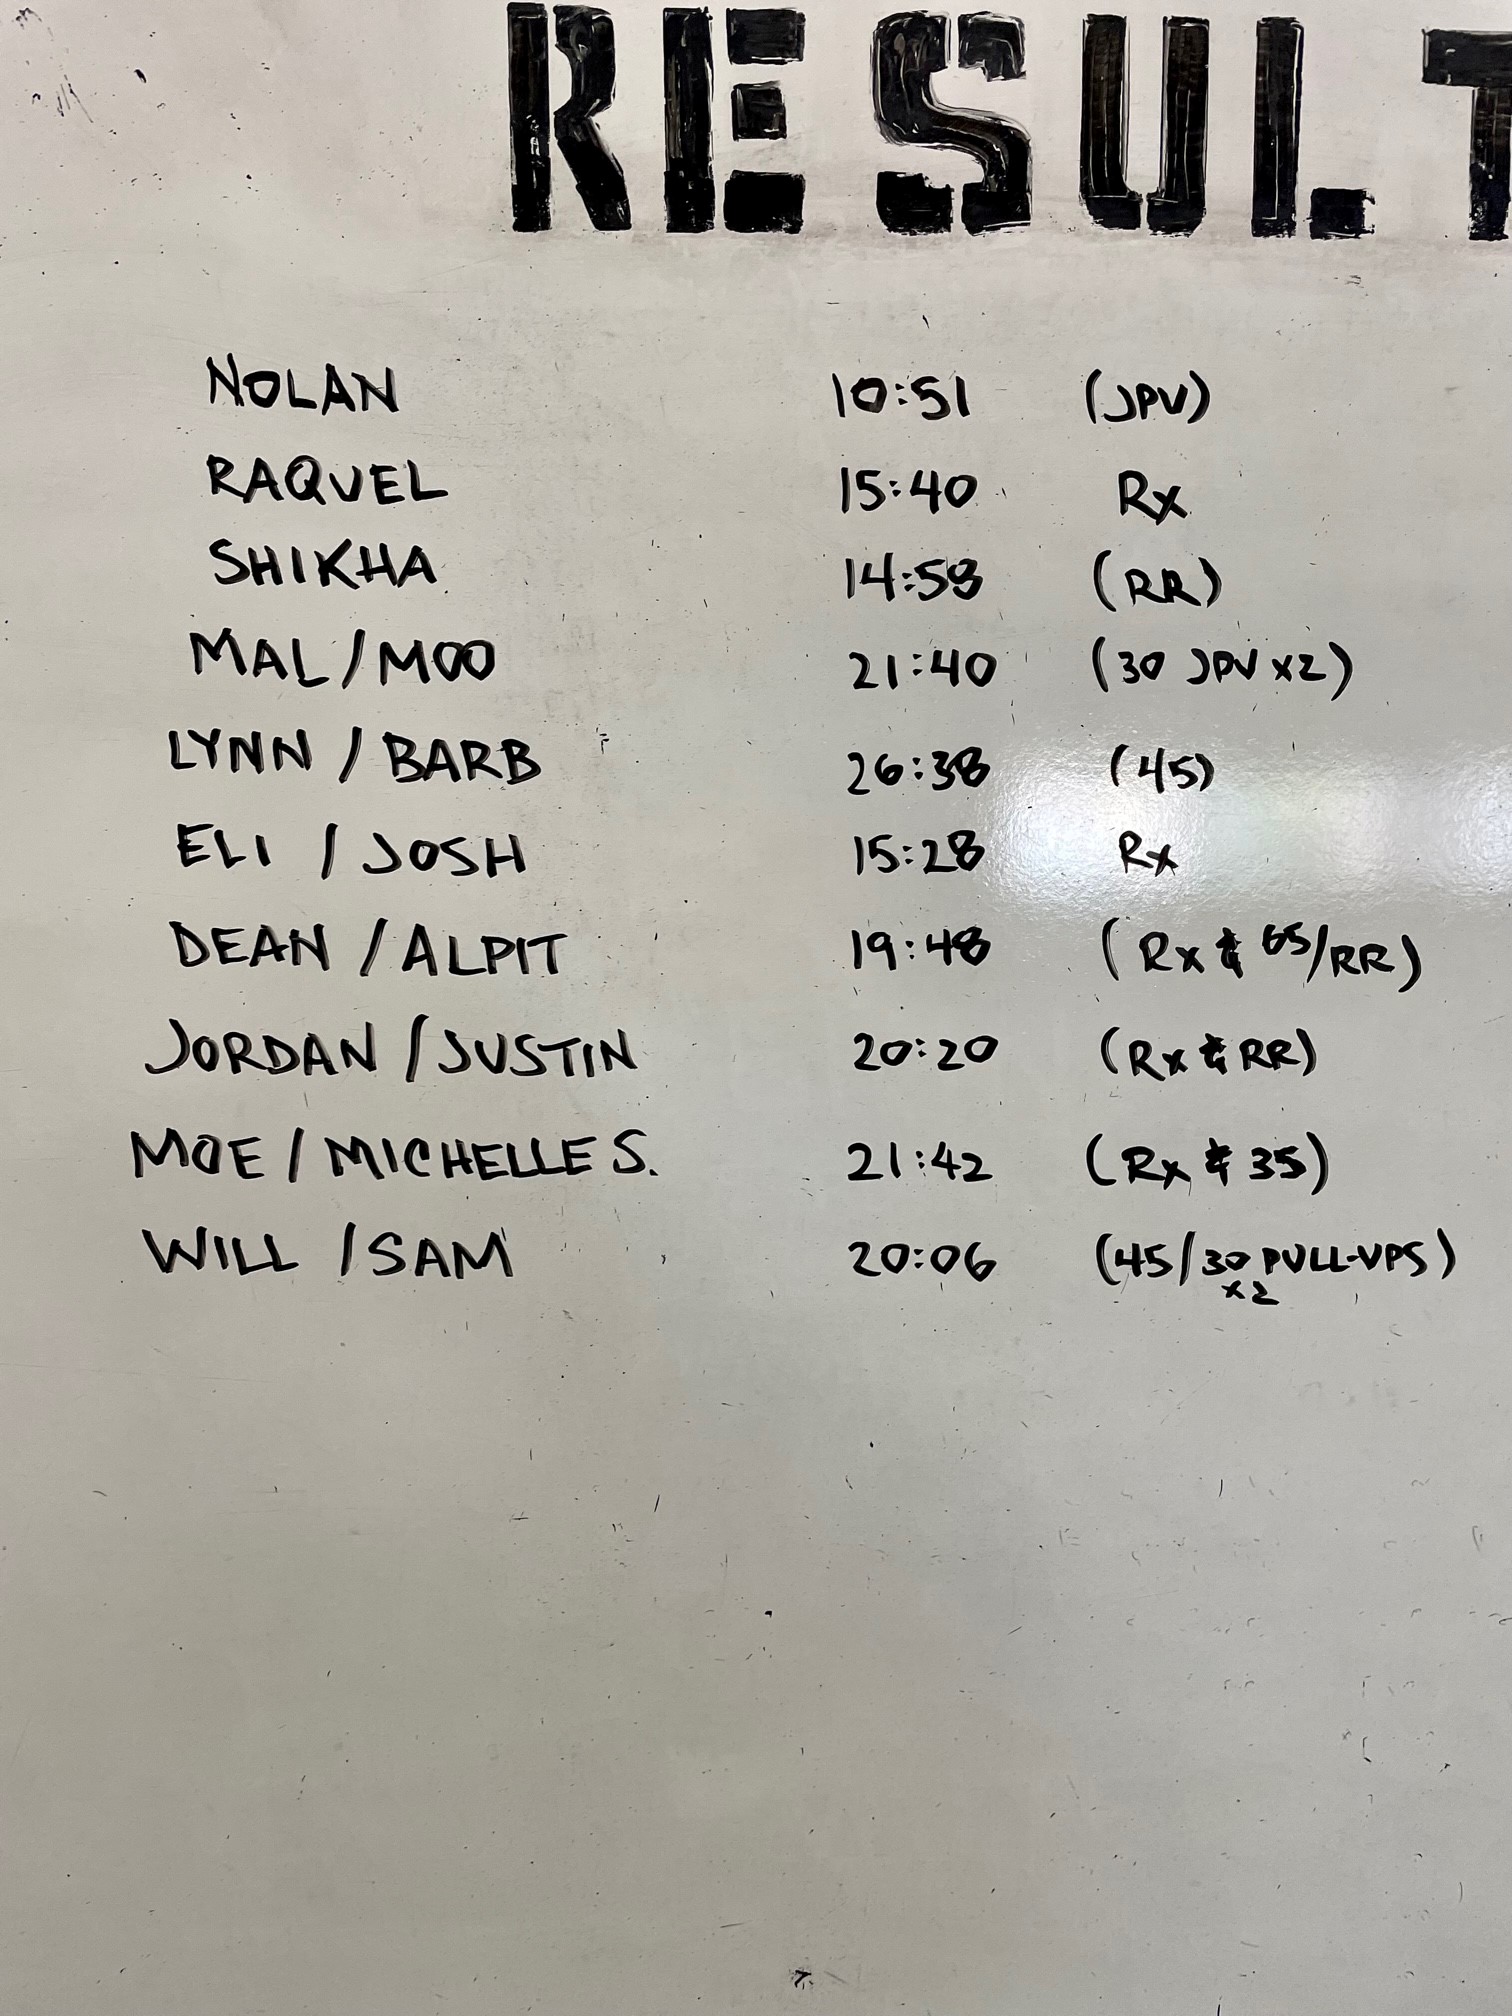 RESULT
NOLAN 10:51 (JPU)
RAQUEL 15:40 Rx
SHIKHA 14:58 (RR)
MAL/MOO 21:40 (30 JPU x2)
LYNN / BARB 26:38 (45)
ELI / JOSH 15:28 Rx
DEAN / ALPIT 19:48 (Rx & 65/RR)
JORDAN / JUSTIN 20:20 (Rx & RR)
MOE / MICHELLE S. 21:42 (Rx & 35)
WILL / SAM 20:06 (45/30 PULL-UPS)
x2